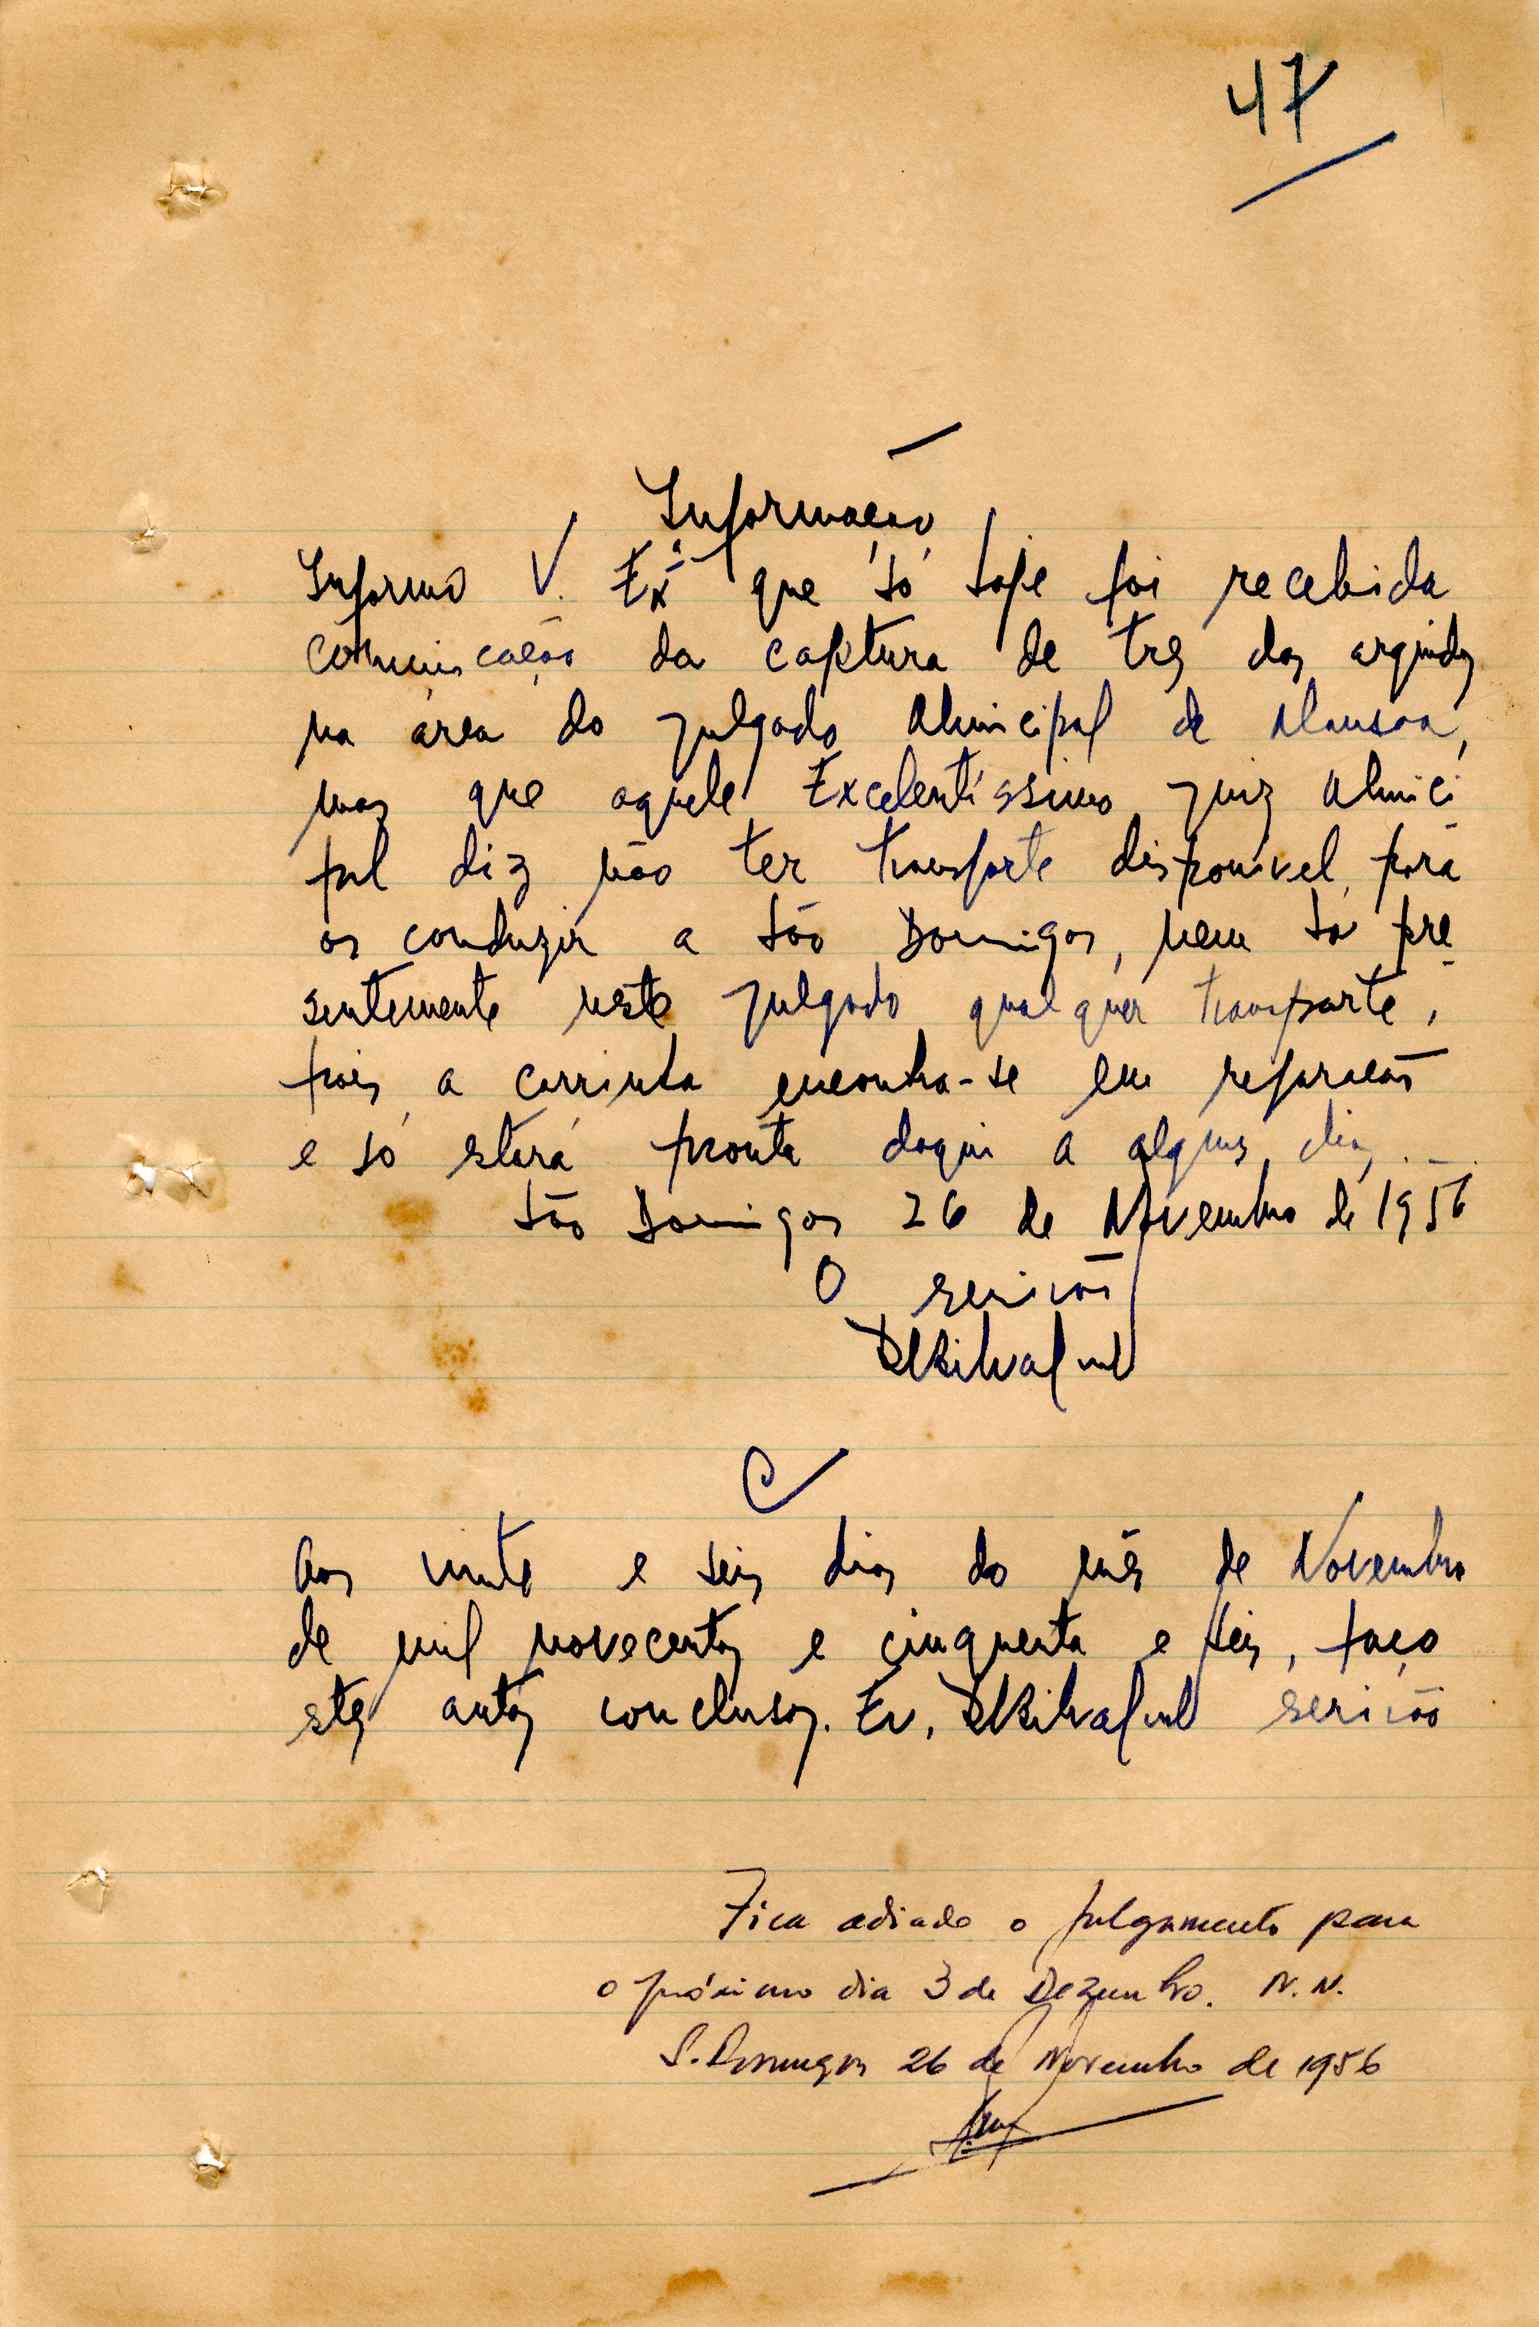 47
Informação
Informo V. Exª que só hoje foi recebida
comunicação da captura de tres dos arguidos
na área do Julgado Municipal de Mansoa,
mas que aquele Excelentíssimo Juiz Munici
pal diz não ter transporte disponível para
os conduzir a São Domingos, nem há pre
sentemente neste Julgado qualquer transporte,
pois a carrinha encontra-se em reparação
e só estará pronta daqui a alguns dias.
São Domingos 26 de Novembro de 1956
O escrivão
C
Aos vinte e seis dias do mês de Novembro
de mil novecentos e cinquenta e seis, faço
estes autos conclusos. Eu, escrivão
Fica adiado o julgamento para
o próximo dia 3 de Dezembro. N. N.
S. Domingos 26 de Novembro de 1956